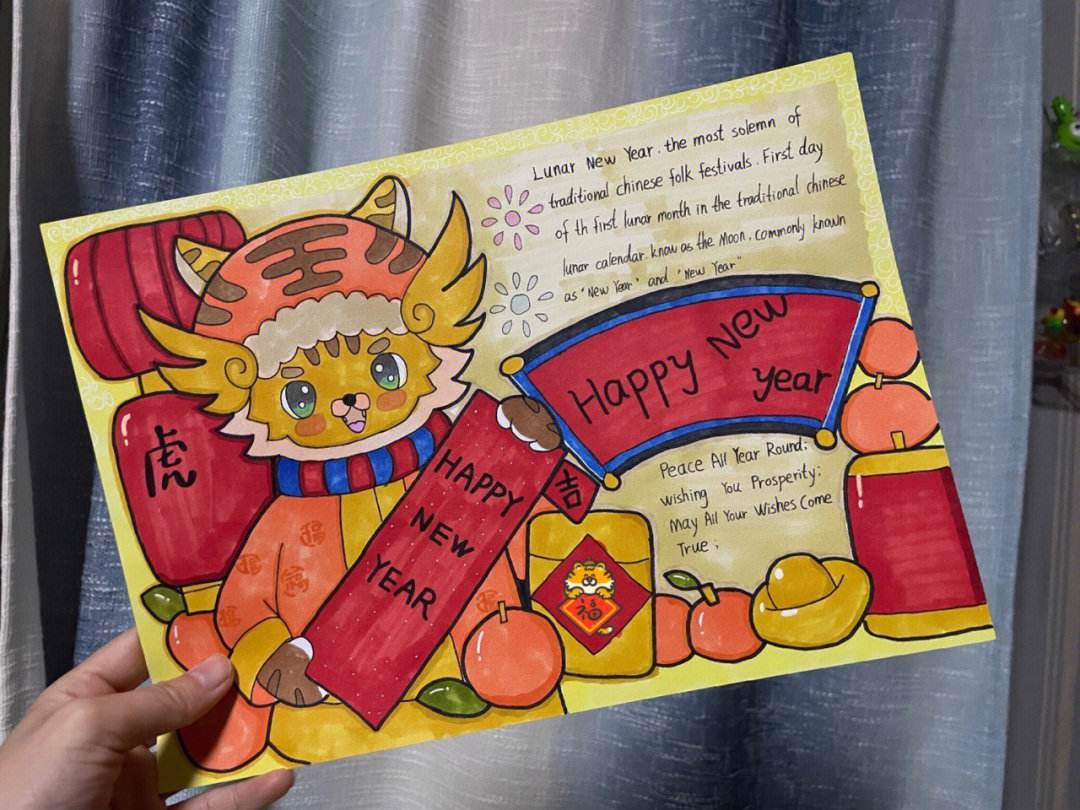 Lunar New Year. the most solemn of
traditional chinese folk festivals. First day
of th first lunar month in the traditional chinese
lunar calendar. know as the Moon. commonly known
as "New Year" and "New Year"
Happy New
year
虎
HAPPY
NEW
YEAR
吉
Peace All Year Round;
wishing You Prosperity;
May All Your Wishes Come
True;
福
福
福
福
福